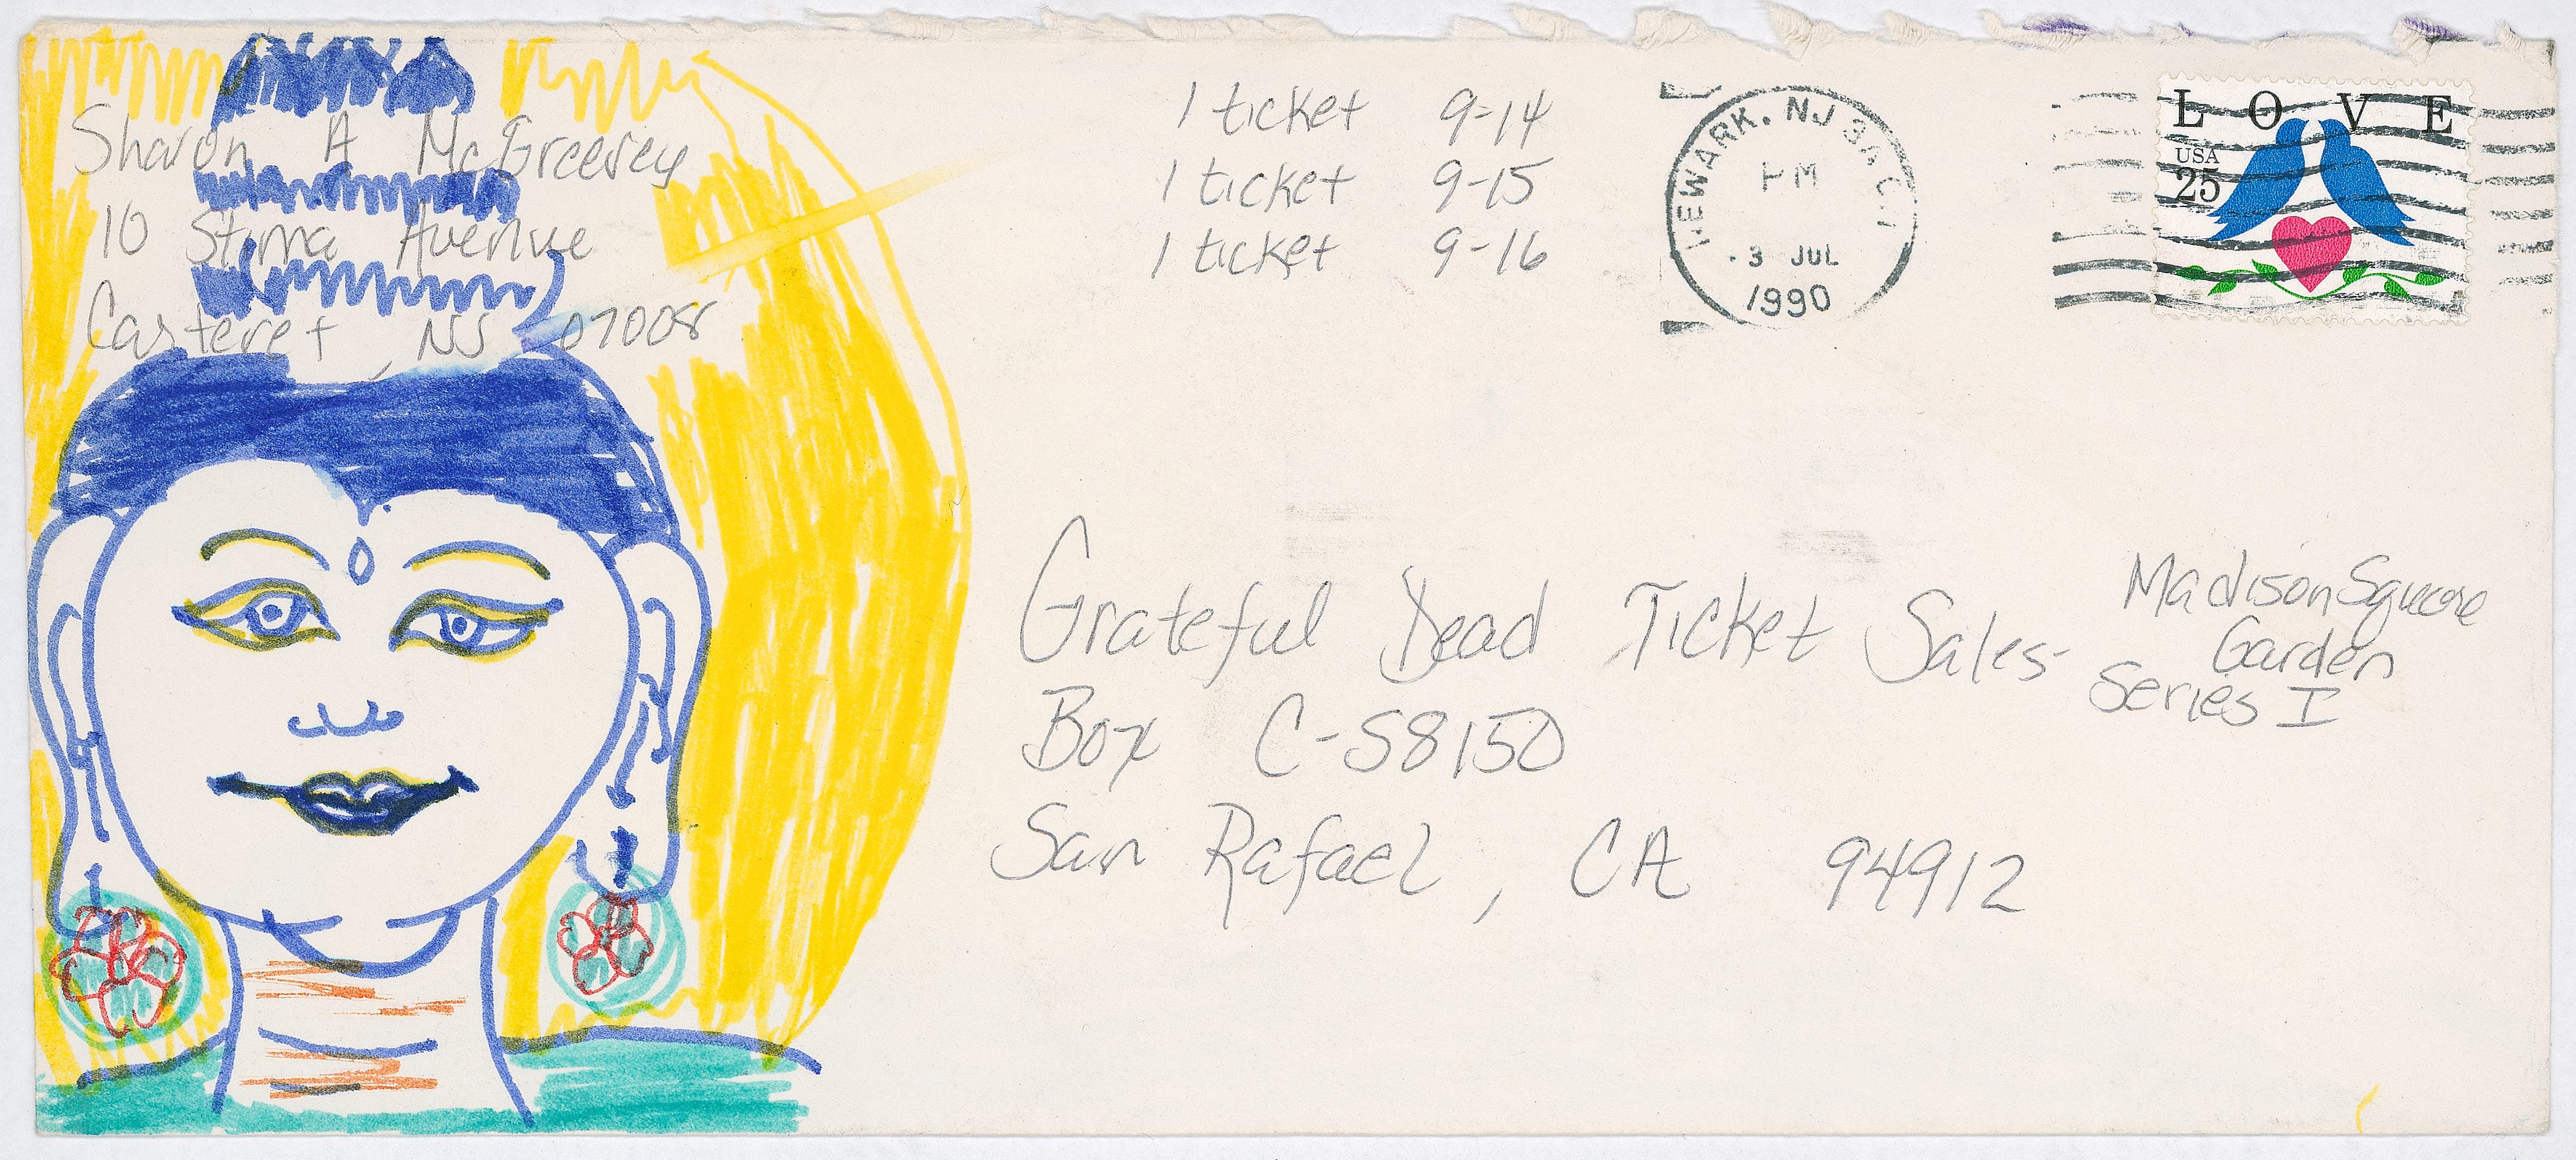 Sharon A McGreevey
10 Stima Avenue
Carteret, NJ 07008
1 ticket 9-14
1 ticket 9-15
1 ticket 9-16
NEWARK. NJ
PM
3 JUL
1990
LOVE
USA
25
Grateful Dead Ticket Sales-
Madison Square
Garden
Series I
Box C-S8150
San Rafael, CA 94912